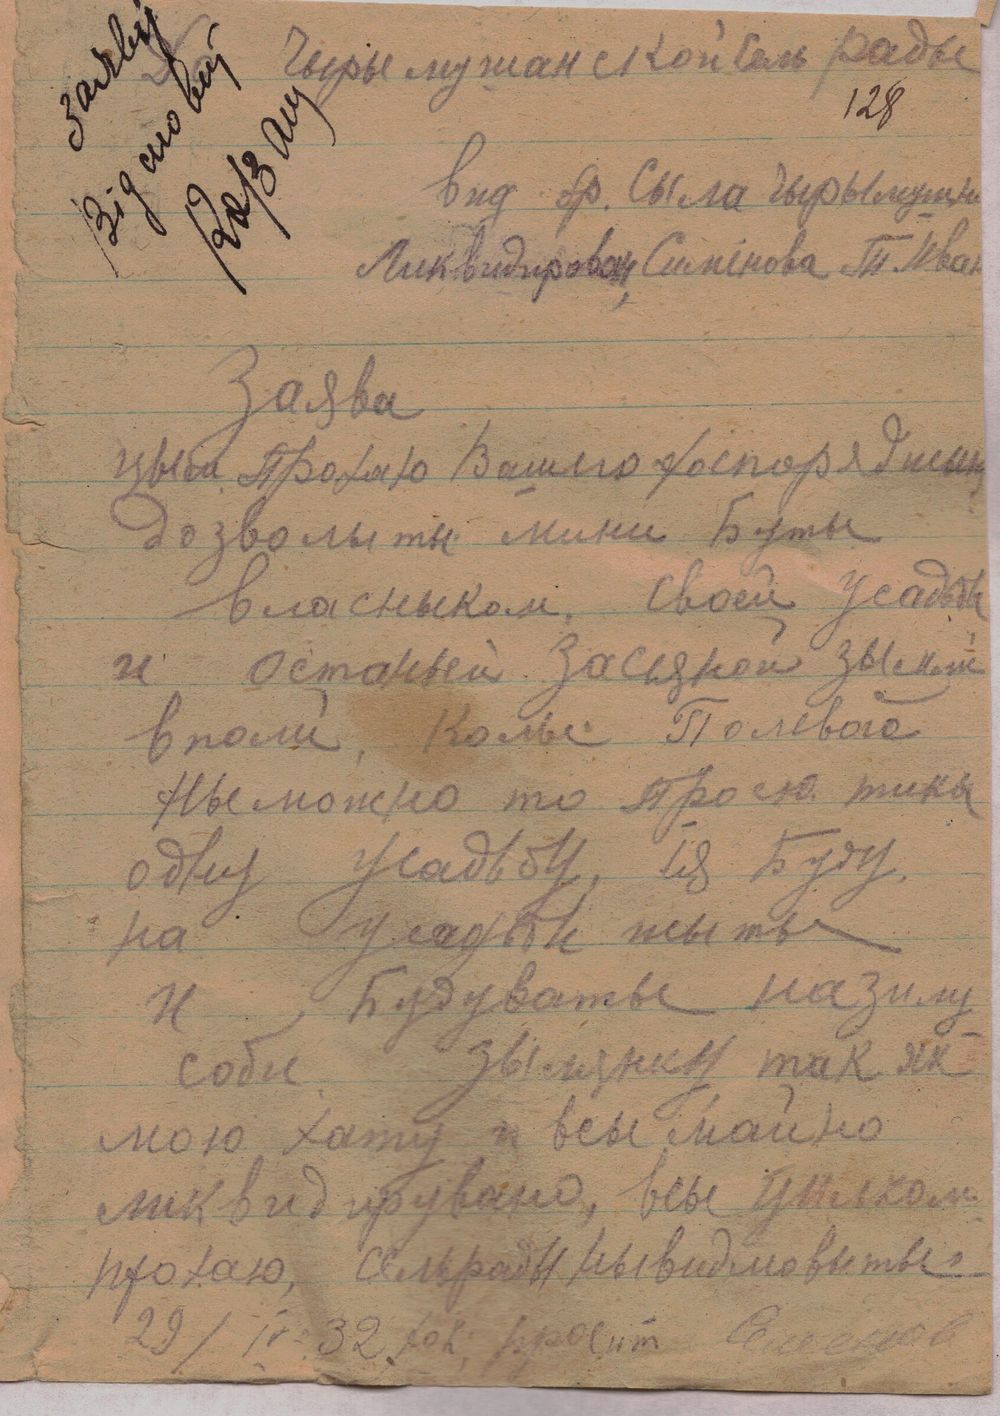 Заяву
Відмовить
До Чырымушанской Сель рады
128
вид гр. Сыла Чырымушы
Ликвидирован, Симінова Т. Иван
Заява
цым прохаю Вашого
дозволыты мини Буты
власныком, своей усадьби
и останьей засіяной зымли
вполи, колы Полевой
ныможно то просю тикы
одну усадьбу, ія Буду,
на усадьби жыты
и Будуваты назиму
соби зымлянку так як
мою хату и всы майно
ликвидирувано, всы цилком
прохаю, Сельради нывидмовыты
29/IV 32 року просит